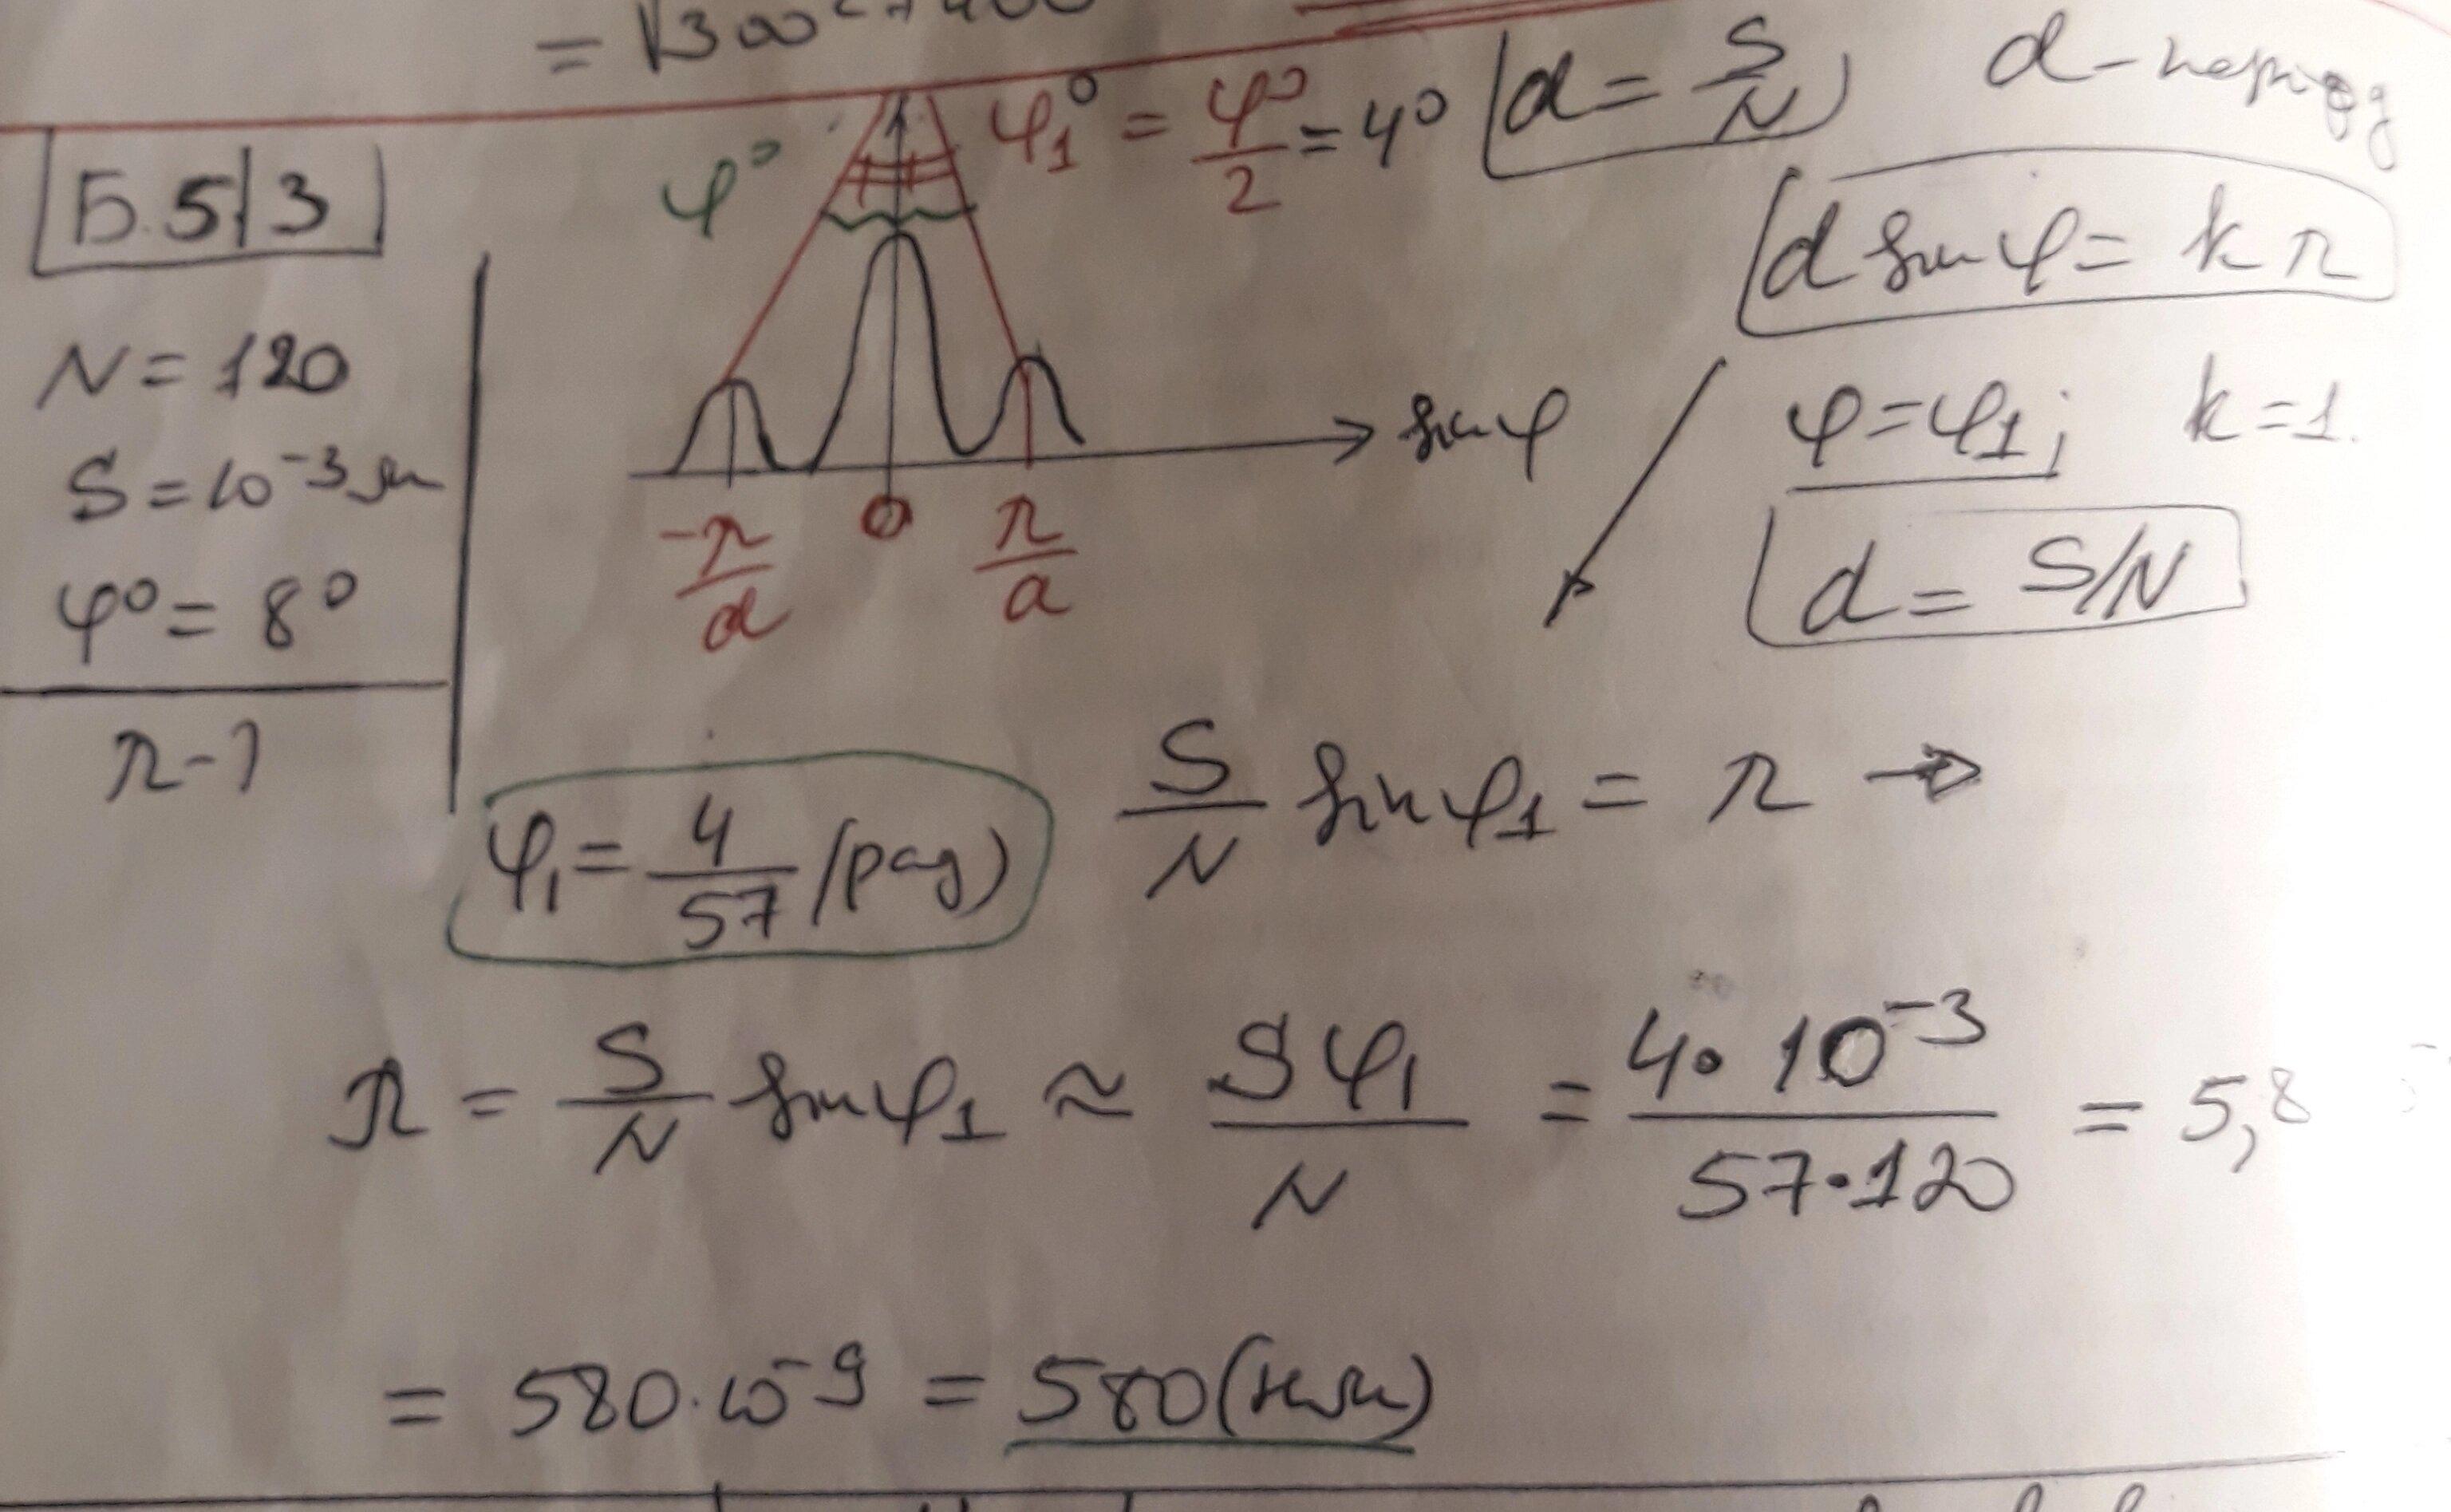 = √300² + 400
Б.5|3
N = 120
S = 10⁻³ м
φ° = 8°
λ - ?
φ°
φ₁° = φ°/2 = 4°
d = S/N
d - период
sin φ
-λ/d 0 λ/d
d sin φ = k λ
φ = φ₁; k = 1.
d = S/N
φ₁ = 4/57 (рад)
S/N sin φ₁ = λ →
λ = S/N sin φ₁ ≈ Sφ₁/N = 4 · 10⁻³/57·120 = 5,8
= 580·10⁻⁹ = 580 (нм)